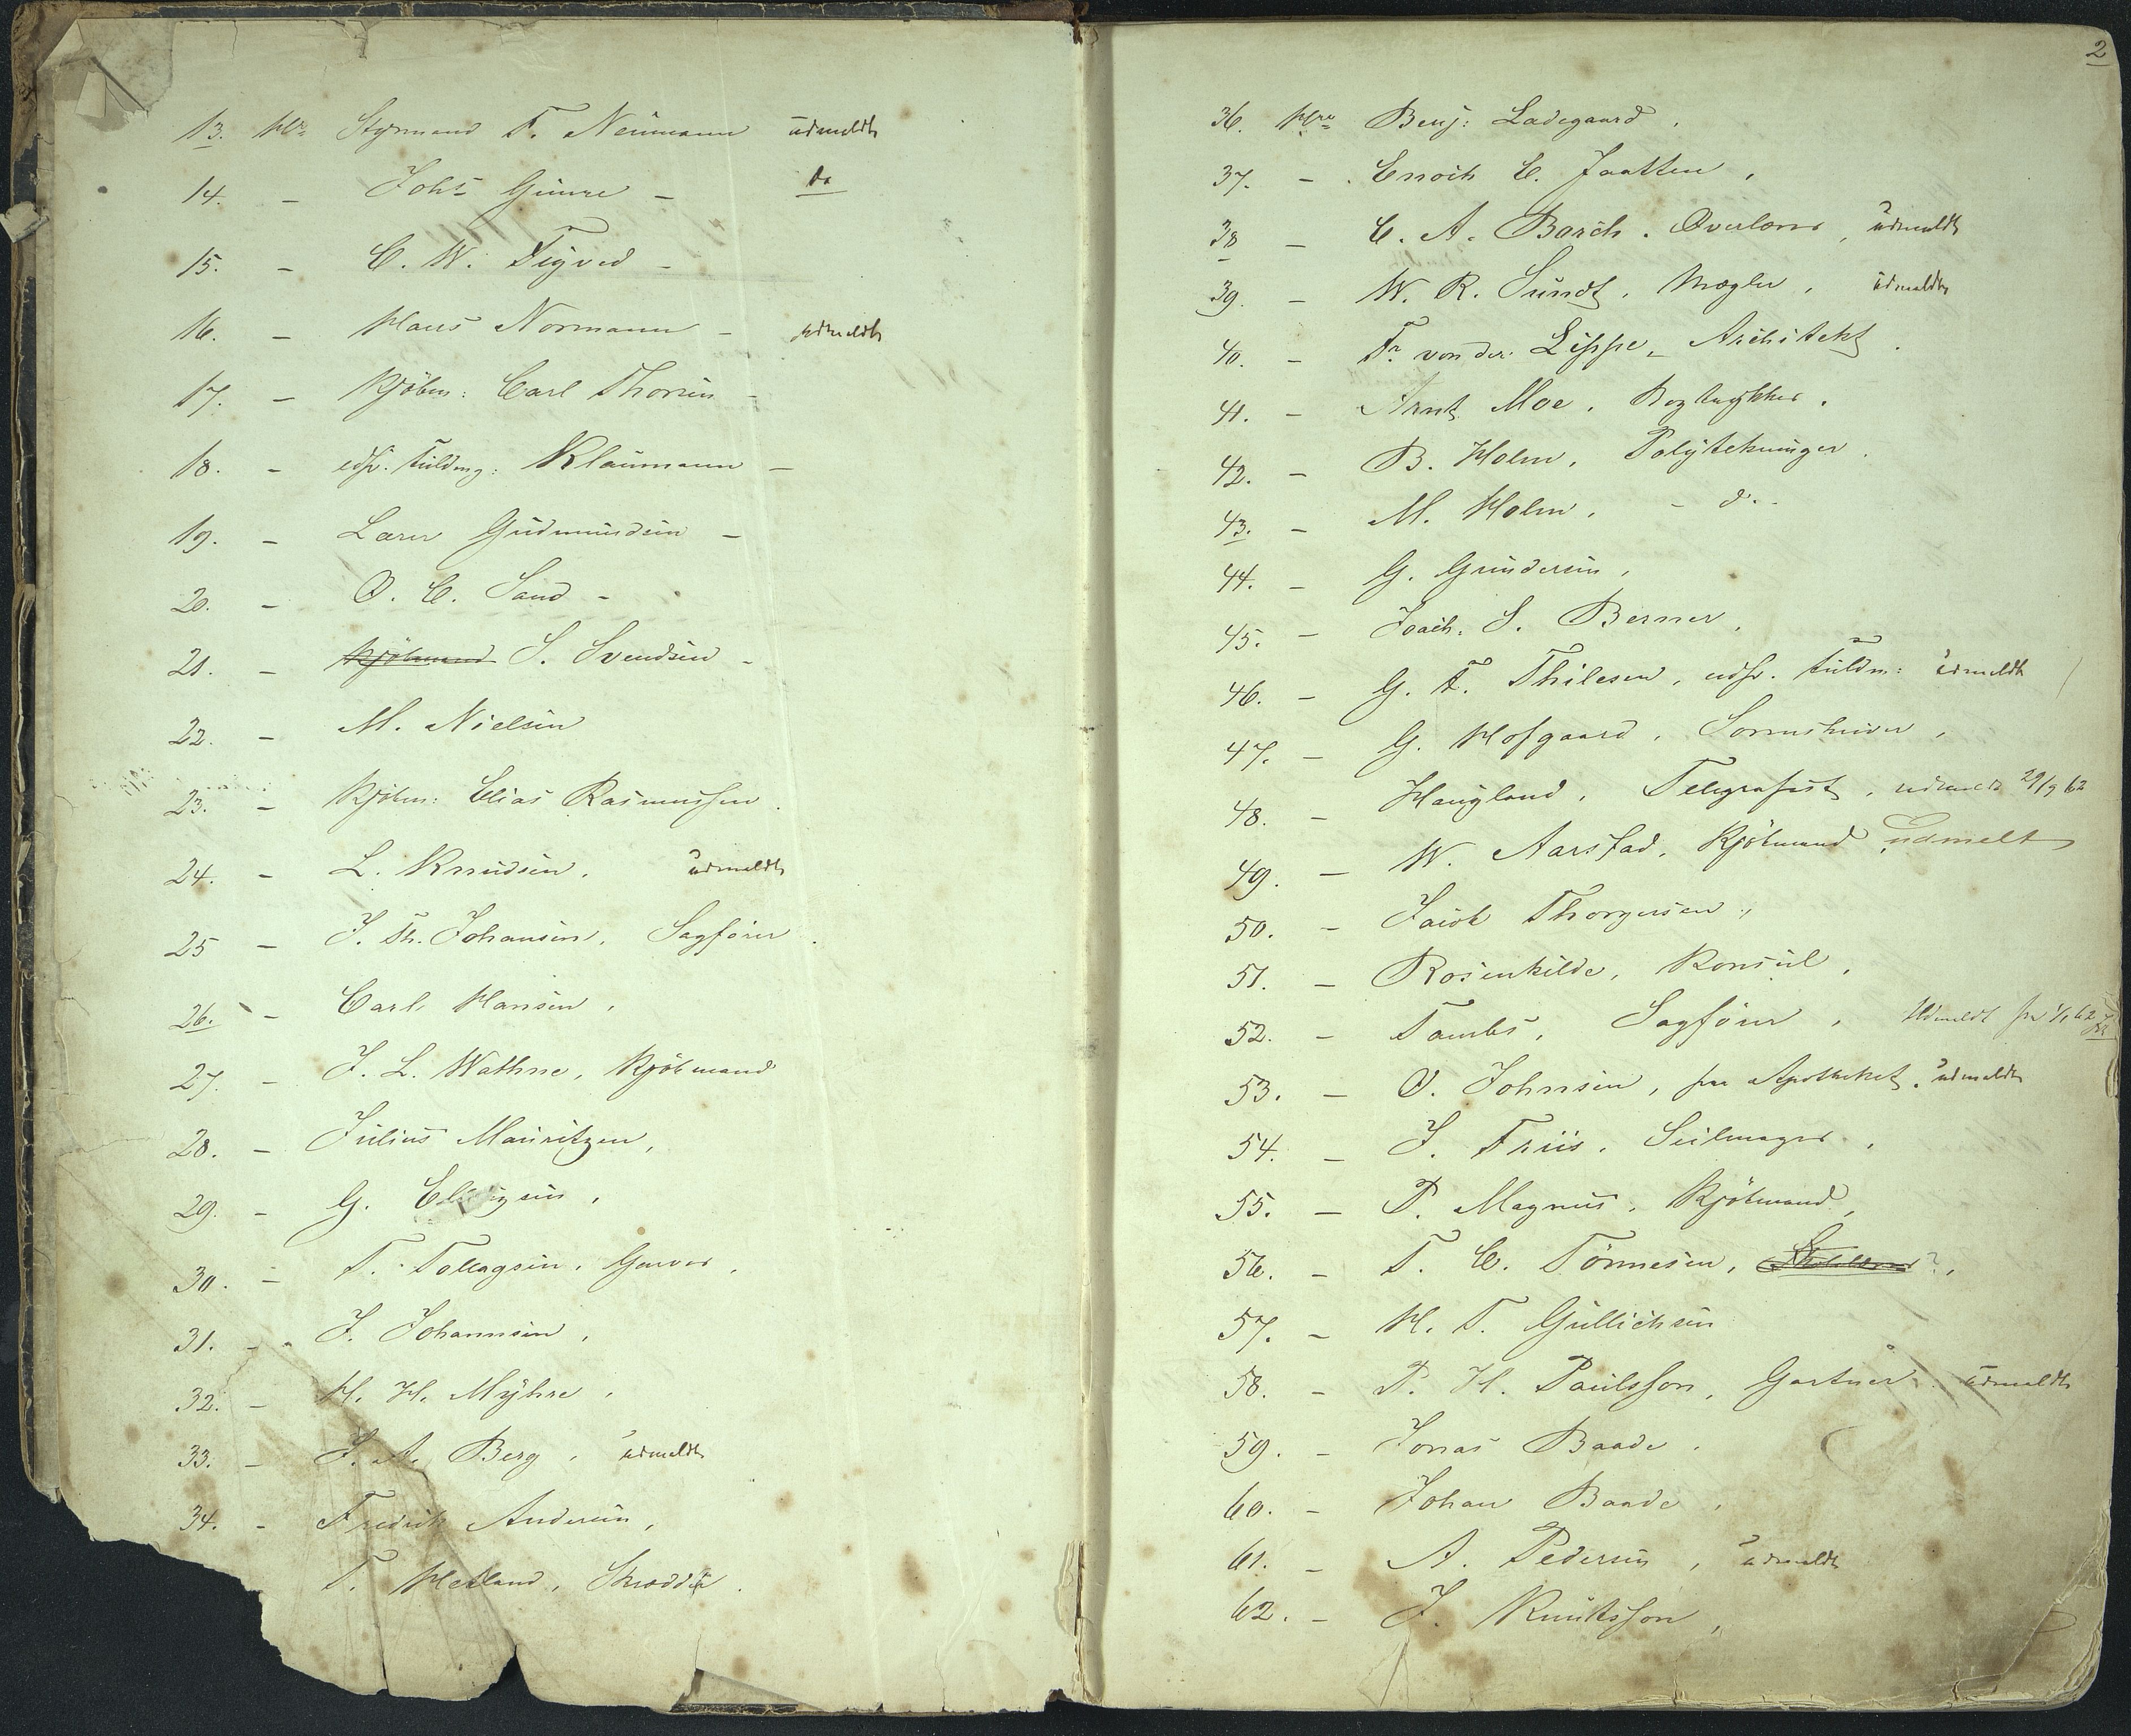 13. Hr. Styrmand T. Neumann udmeldt
14. - Johs Gimre - do
15. - C. W. Tigved -
16. - Hans Normann - udmeldt
17. - Kjöbm: Carl Thorsen -
18. - edsv. fuldmg: Klaumann -
19. - Lærer Gudmundsen -
20. - O. C. Sand -
21. - Kjöbmand S. Svendsen -
22. - M. Nielsen
23. - Kjöbm: Elias Rasmussen.
24. - L. Knudsen. udmeldt
25 - J. Th. Johansen. Sagförer.
26. - Carl Hansen,
27. - J. L. Wathne, Kjöbmand
28. - Julius Mauritzen,
29. - G.
30. - T. Tollagsen. Garver.
31. - J. Johannsen,
32. - H. H. Myhre,
33. - J. A. Berg, udmeldt
34. - Fredrik Andersen,
T. Hetland, Skrædder.
2
36. Hrr Benj: Ladegaard,
37. - Enoch E. Jaatten,
38 - C. A. Barch. Overlærer, udmeldt
39. - W. R. Sundt. Mægler, udmeldt
40. - Fr. von der Lippe, Architekt.
41. - Arnt Moe. Bogtrykker.
42. - B. Holm, Polytekniger.
43. - M. Holm. - do. -
44. - G. Gundersen,
45. - Joach. S. Berner,
46. - G. F. Thilesen, edsv. fuldm: udmeldt
47. - G. Hofgaard, Sorenskriver,
48. - Haugland, Telegrafist, udmeldt 29/9 62
49. - W. Aarstad, Kjöbmand udmelt
50. - Jacob Thorgersen,
51. - Rosenkilde, Konsul,
52. - Tambs, Sagförer, Udmeldt fra 1/1 62
53. - O. Johnsen, paa Apotheket. udmeldt
54. - J. Friis. Seilmager,
55. - P. Magnus. Kjöbmand,
56. - T. C. Tönnesen,
57. - H. T. Gullichsen
58. - P. H. Paulsson, Gartner udmeldt
59. - Jonas Baade.
60. - Johan Baade,
61. - A. Pedersen, udmeldt
62. - J. Knutsson,